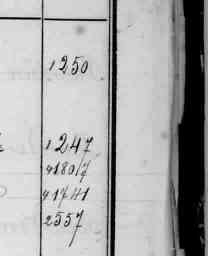 1250
1247
41807
41741
2557